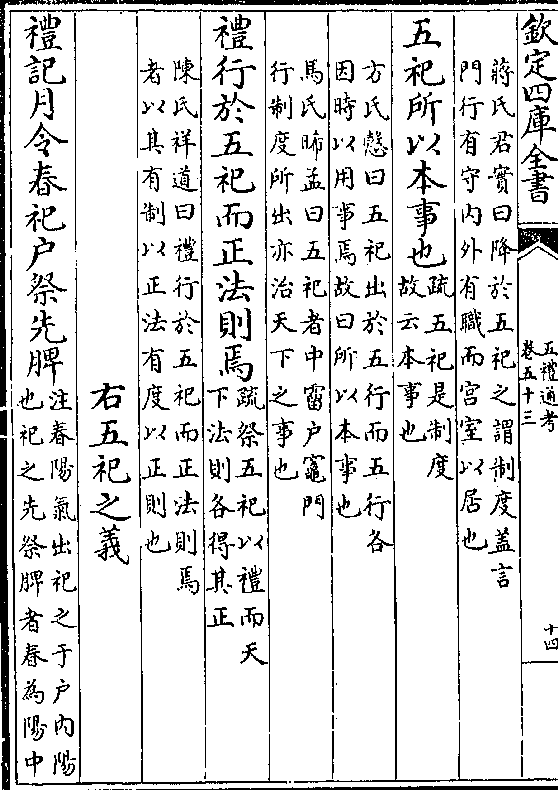 欽定四庫全書
五禮通考
卷五十三
十四
蔣氏君實曰降於五祀之謂制度盖言
門行有守内外有職而宫室以居也
五祀所以本事也疏五祀是制度
故云本事也
方氏慤曰五祀出於五行而五行各
因時以用事焉故曰所以本事也
馬氏晞孟曰五祀者中霤户竈門
行制度所出亦治天下之事也
禮行於五祀而正法則焉疏祭五祀以禮而天
下法則各得其正
陳氏祥道曰禮行於五祀而正法則焉
者以其有制以正法有度以正則也
右五祀之義
禮記月令春祀户祭先脾注春陽氣出祀之于户内陽
也祀之先祭脾者春為陽中